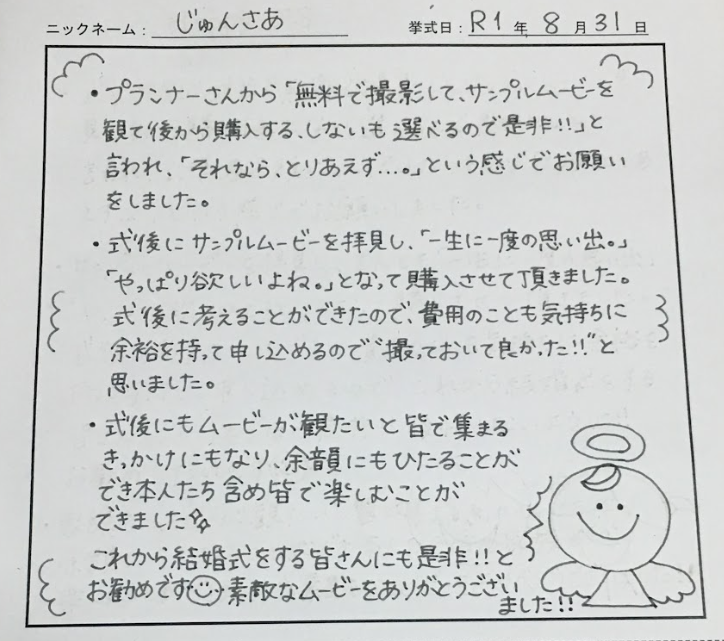 ニックネーム: じゅんさあ 挙式日: R1年 8月 31日
・プランナーさんから「無料で撮影して、サンプルムービーを
観て後から購入する、しないも選べるので是非!!」と
言われ、「それなら、とりあえず…。」という感じでお願い
をしました。
・式後にサンプルムービーを拝見し、「一生に一度の思い出。」
「やっぱり欲しいよね。」となって購入させて頂きました。
式後に考えることができたので、費用のことも気持ちに
余裕を持って申し込めるので"撮っておいて良かった!!"と
思いました。
・式後にもムービーが観たいと皆で集まる
きっかけにもなり、余韻にもひたることが
でき本人たち含め皆で楽しむことが
できました
これから結婚式をする皆さんにも是非!!と
お勧めです 素敵なムービーをありがとうござい
ました!!